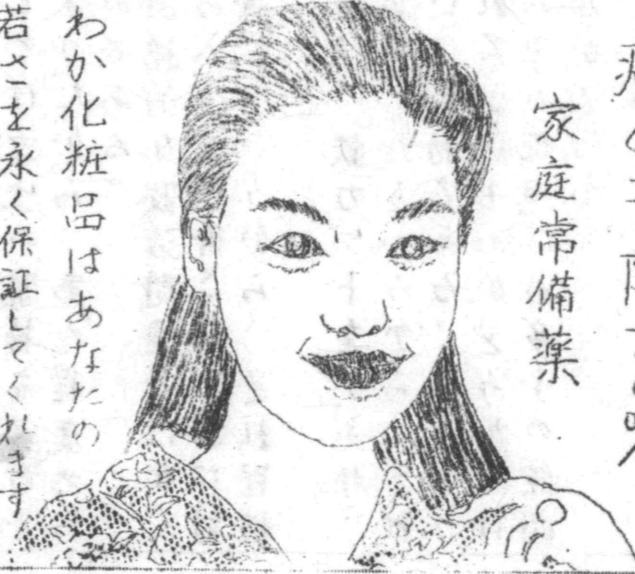 家庭常備薬
わか化粧品はあなたの
若さを永く保証してくれます